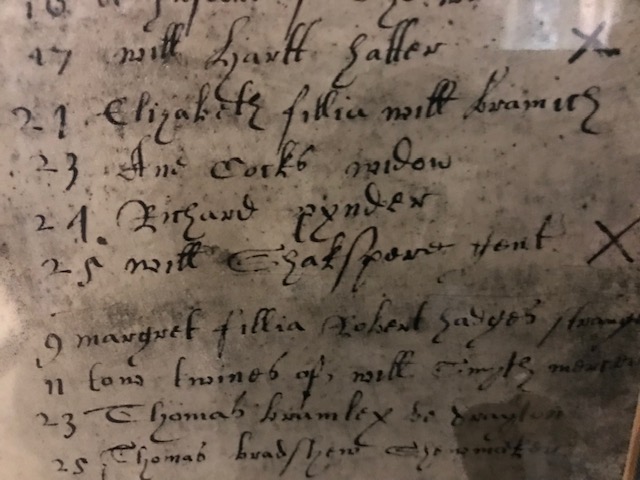 17 will Hartt hatter X
21 Elizabeth fillia will bramich
23 Ane Cocks widow
24 Richard pynder
25 will Shakspere gent X
9 margret fillia Robert hadges strange
11 tow twines of, will Smyth mercer
23 Thomas brumley de drayton
25 Thomas bradshew